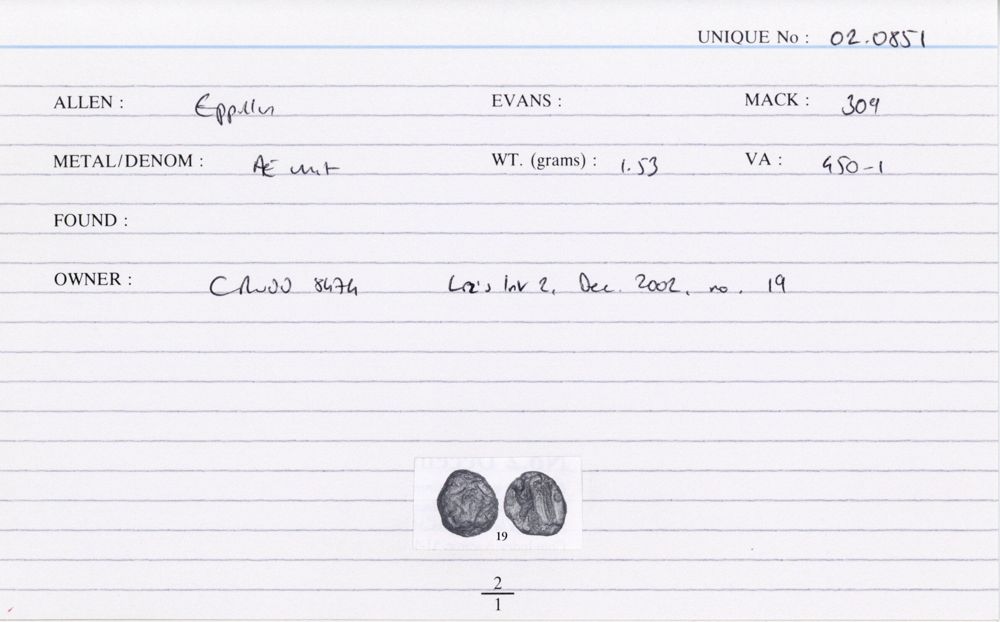 UNIQUE No : 02.0851
ALLEN : Eppillus EVANS : MACK : 309
METAL/DENOM : Æ unit WT. (grams) : 1.53 VA : 450-1
FOUND :
OWNER : 8474 Liz's Inv 2, Dec. 2002, no. 19
19
2
1